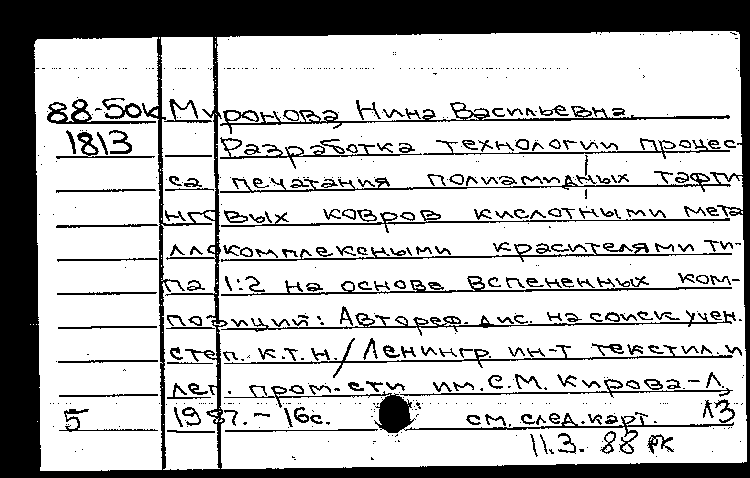 88-50к Миронова, Нина Васильевна.
1813 Разработка технологии процес-
са печатания полиамидных тафти
нговых ковров кислотными мета
ллокомплексными красителями ти-
па 1:2 на основе вспененных ком-
позиций: Автореф. дис. на соиск. учен.
степ. к.т.н. / Ленингр. ин-т текстил. и
лег. пром-сти им. С.М. Кирова-Л.
5 1987. - 16с. см. след. карт. 13
11.3. 88 РК